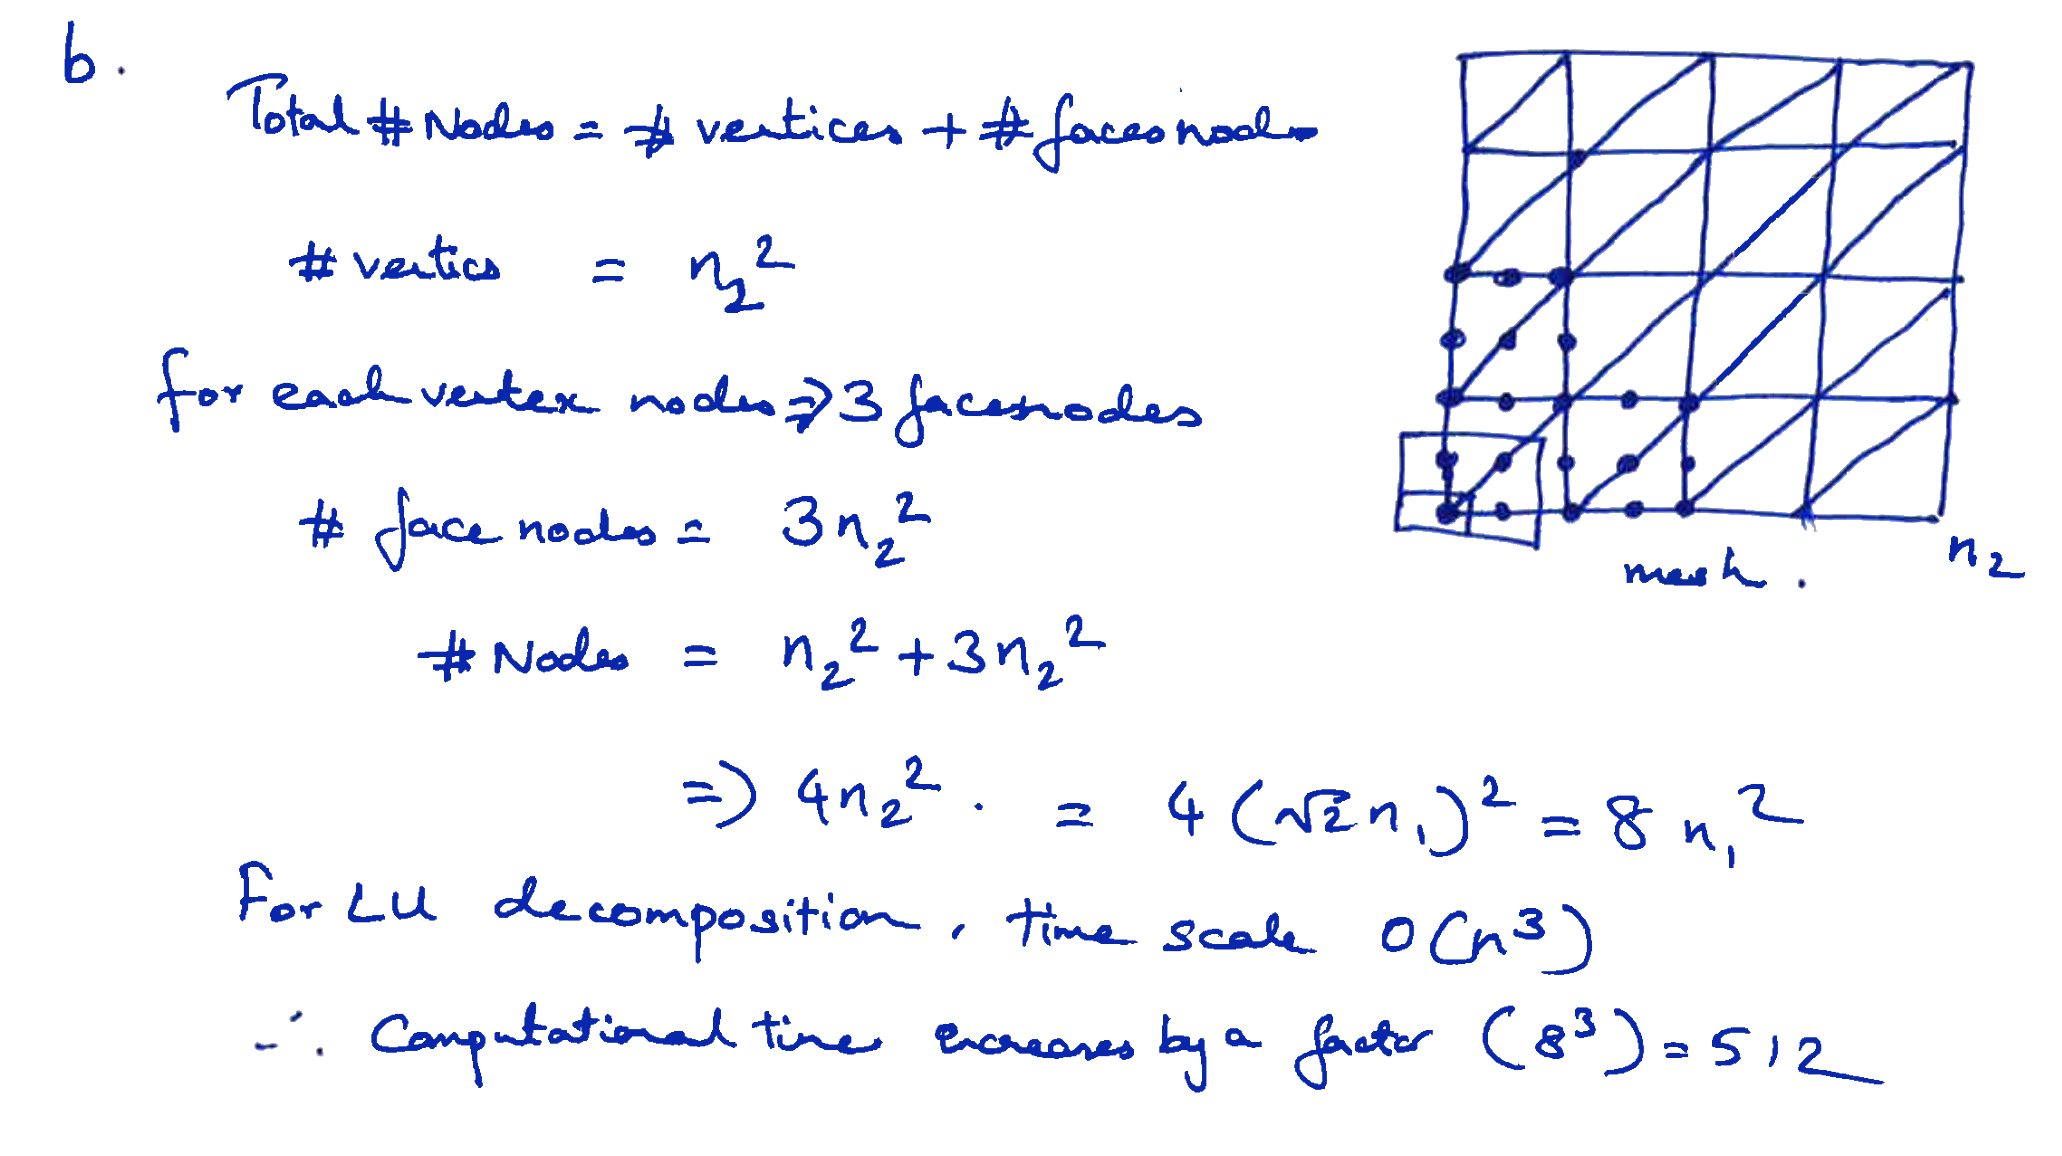 b.
Total # Nodes = # vertices + # faces nodes
# vertics = n₂²
for each vertex nodes ⇒ 3 facesnodes
# face nodes = 3n₂²
# Nodes = n₂² + 3n₂²
⇒ 4n₂². = 4(√2n₁)² = 8n₁²
For LU decomposition, time scale O(n³)
∴ Computational time increases by a factor (8³) = 512
n₂
mesh.